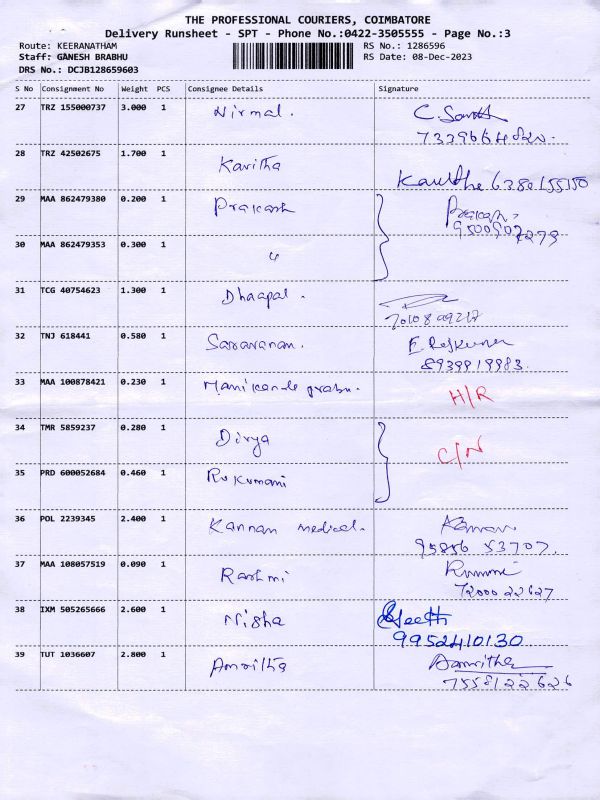 THE PROFESSIONAL COURIERS, COIMBATORE
Delivery Runsheet - SPT - Phone No.:0422-3505555 - Page No.:3
Route: KEERANATHAM RS No.: 1286596
Staff: GANESH BRABHU RS Date: 08-Dec-2023
DRS No.: DCJB128659603
S No Consignment No Weight PCS Consignee Details Signature
27 TRZ 155000737 3.000 1 Nirmal.
28 TRZ 42502675 1.700 1 Kavitha
Kavitha 6380155150
29 MAA 862479380 0.200 1 Prakash Prakash
9500907279
30 MAA 862479353 0.300 1 "
31 TCG 40754623 1.300 1 Dhaapal.
32 TNJ 618441 0.580 1 Saravanan. E. Rajkumar
8939919983.
33 MAA 100878421 0.230 1 Manikanda prabu. H/R
34 TMR 5859237 0.280 1 Divya C/N
35 PRD 600052684 0.460 1 Rukumani
36 POL 2239345 2.400 1 Kannan medical.
95856 53707.
37 MAA 108057519 0.090 1 Rashmi
72000 22627
38 IXM 505265666 2.600 1 Nisha
9952410130
39 TUT 1036607 2.800 1 Amritha Aamritha
7558122626